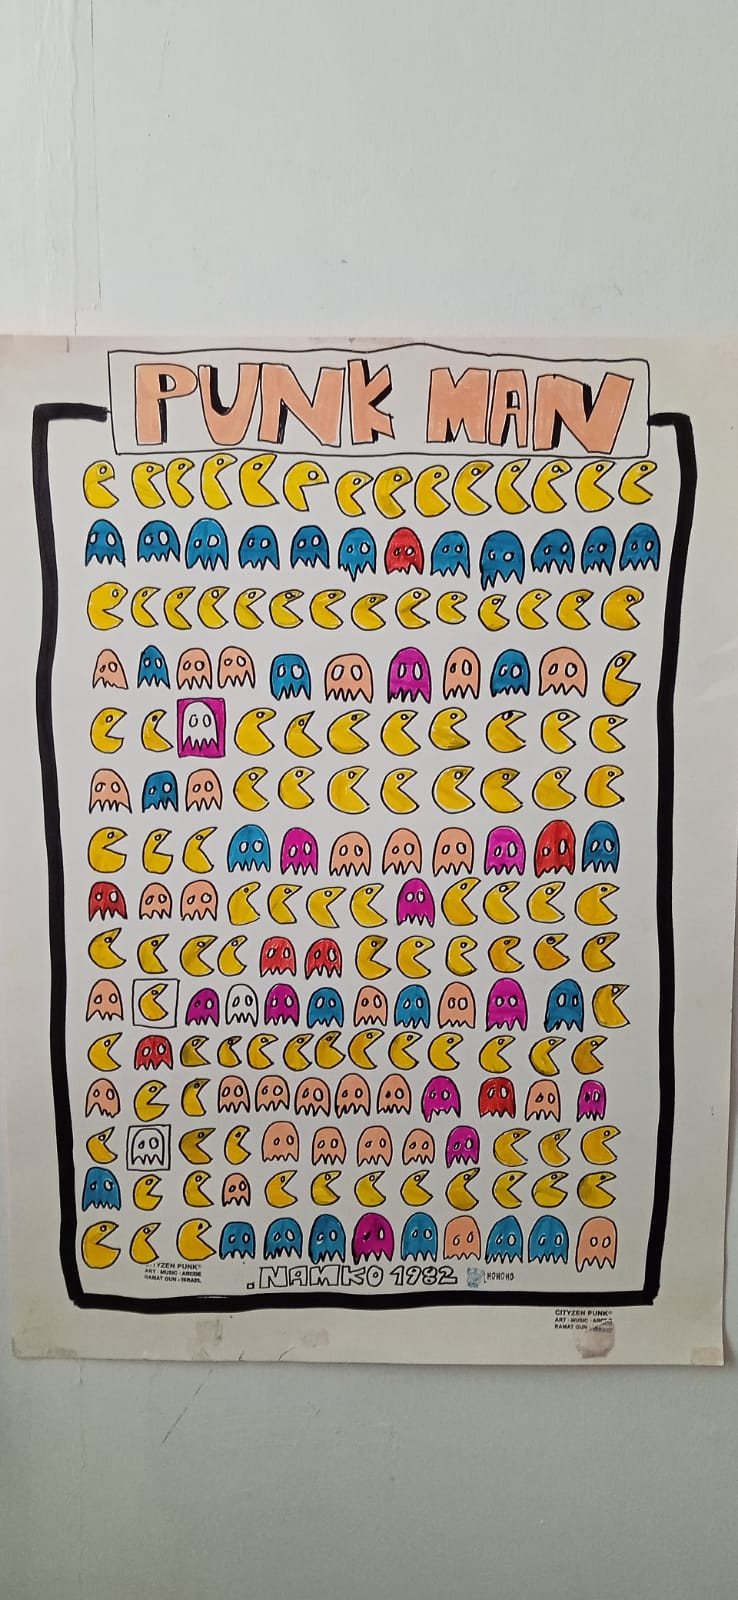 PUNK MAN
CITYZEN PUNK®
ART - MUSIC - ARCDE
RAMAT GUN - ISRAEL
.NAMKO 1982
HOHOHO
CITYZEN PUNK®
ART - MUSIC -
RAMAT GUN -